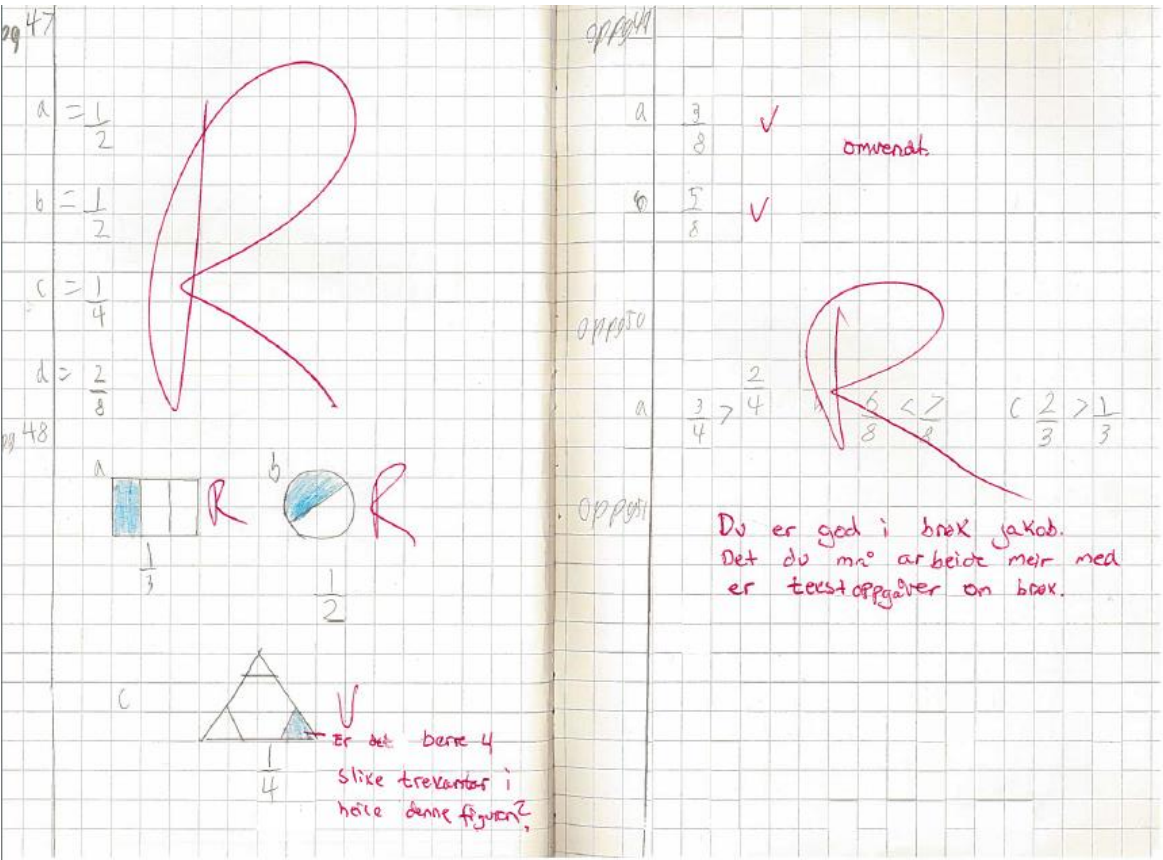 47
a = 1/2
b = 1/2
c = 1/4
d = 2/8
R
48
a
R
b
R
1/3
1/2
c
V
1/4
Er det berre 4
slike trekantar i
heile denne figuren?
a 3/8 V
omvendt.
b 5/8 V
oppg50
R
a 3/4 > 2/4
6/8 < 7/8
c 2/3 > 1/3
oppg51
Du er god i brøk jakob.
Det du må arbeide meir med
er tekstoppgåver om brøk.